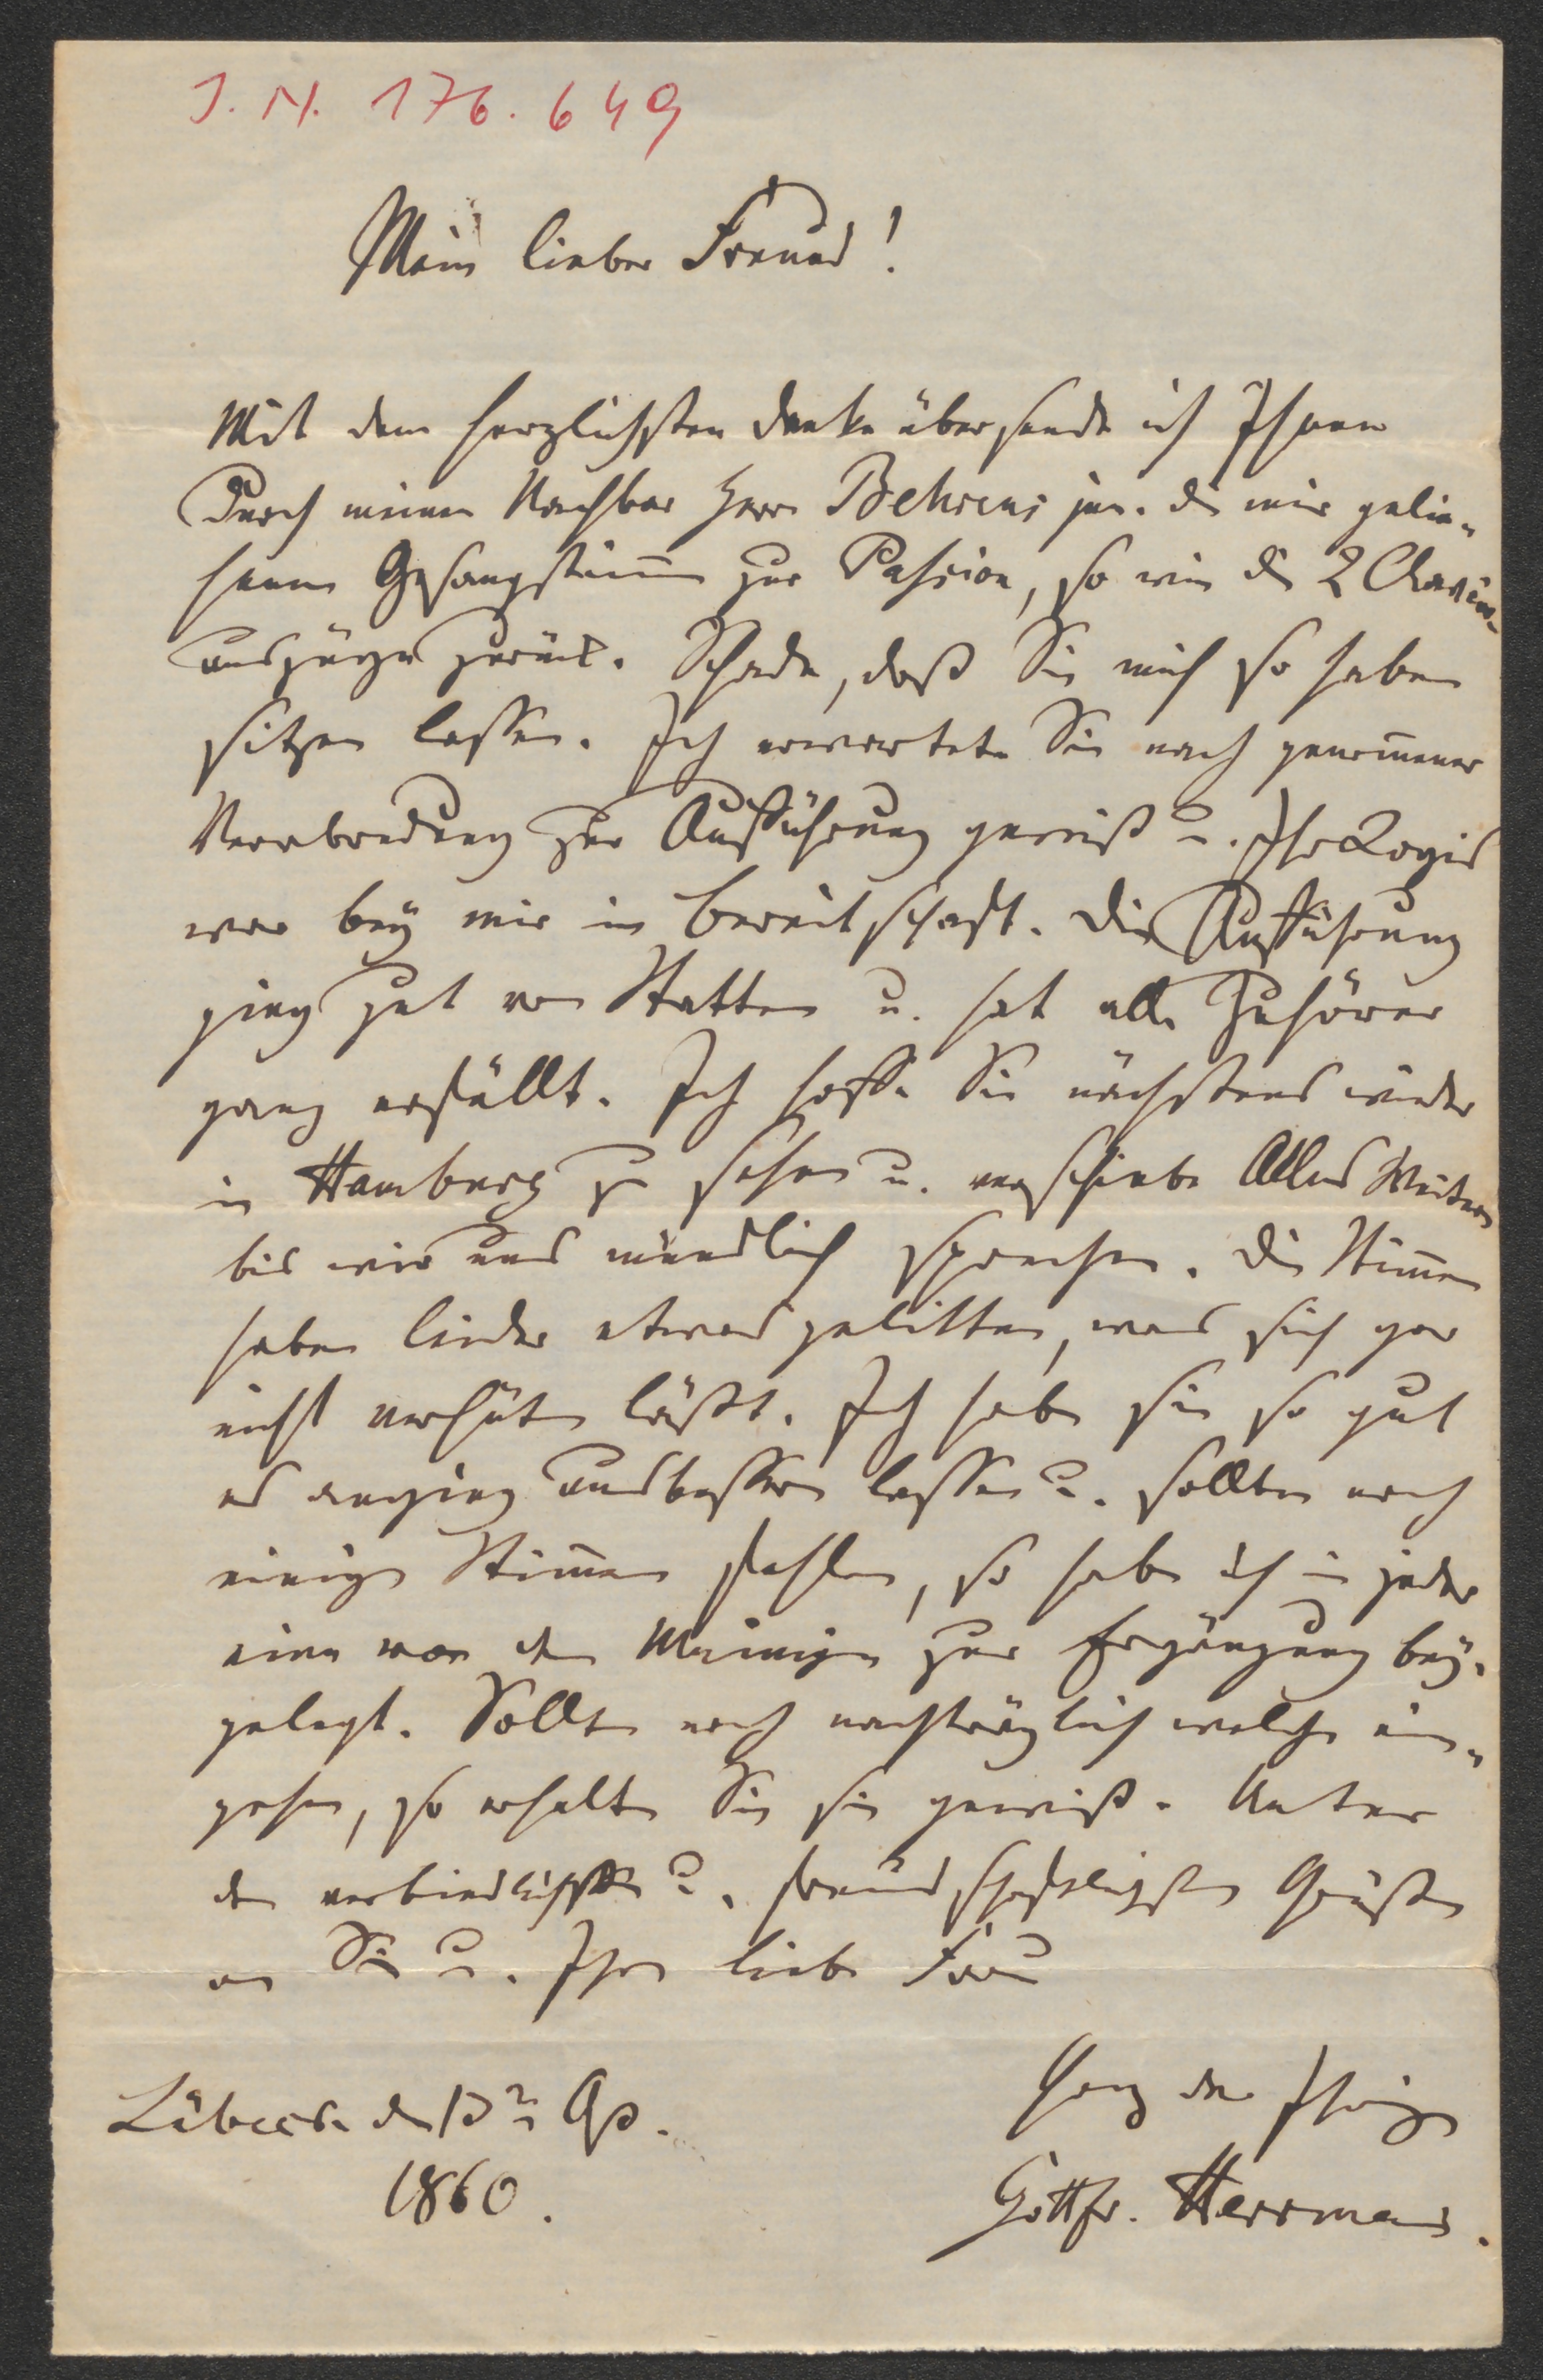 J. N. 176.649
Mein lieber Freund!
Mit dem herzlichsten Danke übersende ich Ihnen
durch meinen Nachbar Herrn Behrens jun. die mir gelie-
henen Gesangstimmen zur Passion, so wie die 2 Clavier-
auszüge zurück. Schade, daß Sie mich so haben
sitzen lassen. Ich erwartete Sie nach genommener
Verabredung zur Aufführung gewiß u. Ihr Logis
war bey mir in Bereitschaft. Die Aufführung
ging gut von Statten u. hat alle Zuhörer
ganz erfüllt. Ich hoffe Sie nächstens wieder
in Hamburg zu sehen u. verschiebe Alles Weitere
bis wir uns mündlich sprechen. Die Stimmen
haben leider etwas gelitten, was sich gar
nicht verhüten läßt. Ich habe sie so gut
es anging ausbessern lassen u. sollten noch
einige Stimmen fehlen, so habe ich in jeder
eine von den Meinigen zur Ergänzung bey-
gelegt. Sollten noch nachträglich welche ein-
gehen, so erhalten Sie sie gewiß. Unter
den verbindlichsten u. freundschaftlichsten Grüßen
an Sie u. Ihre liebe Frau
Ganz der Ihrige
Lübeck d. 13n Ap.
1860.
Gottfr. Herrmann.